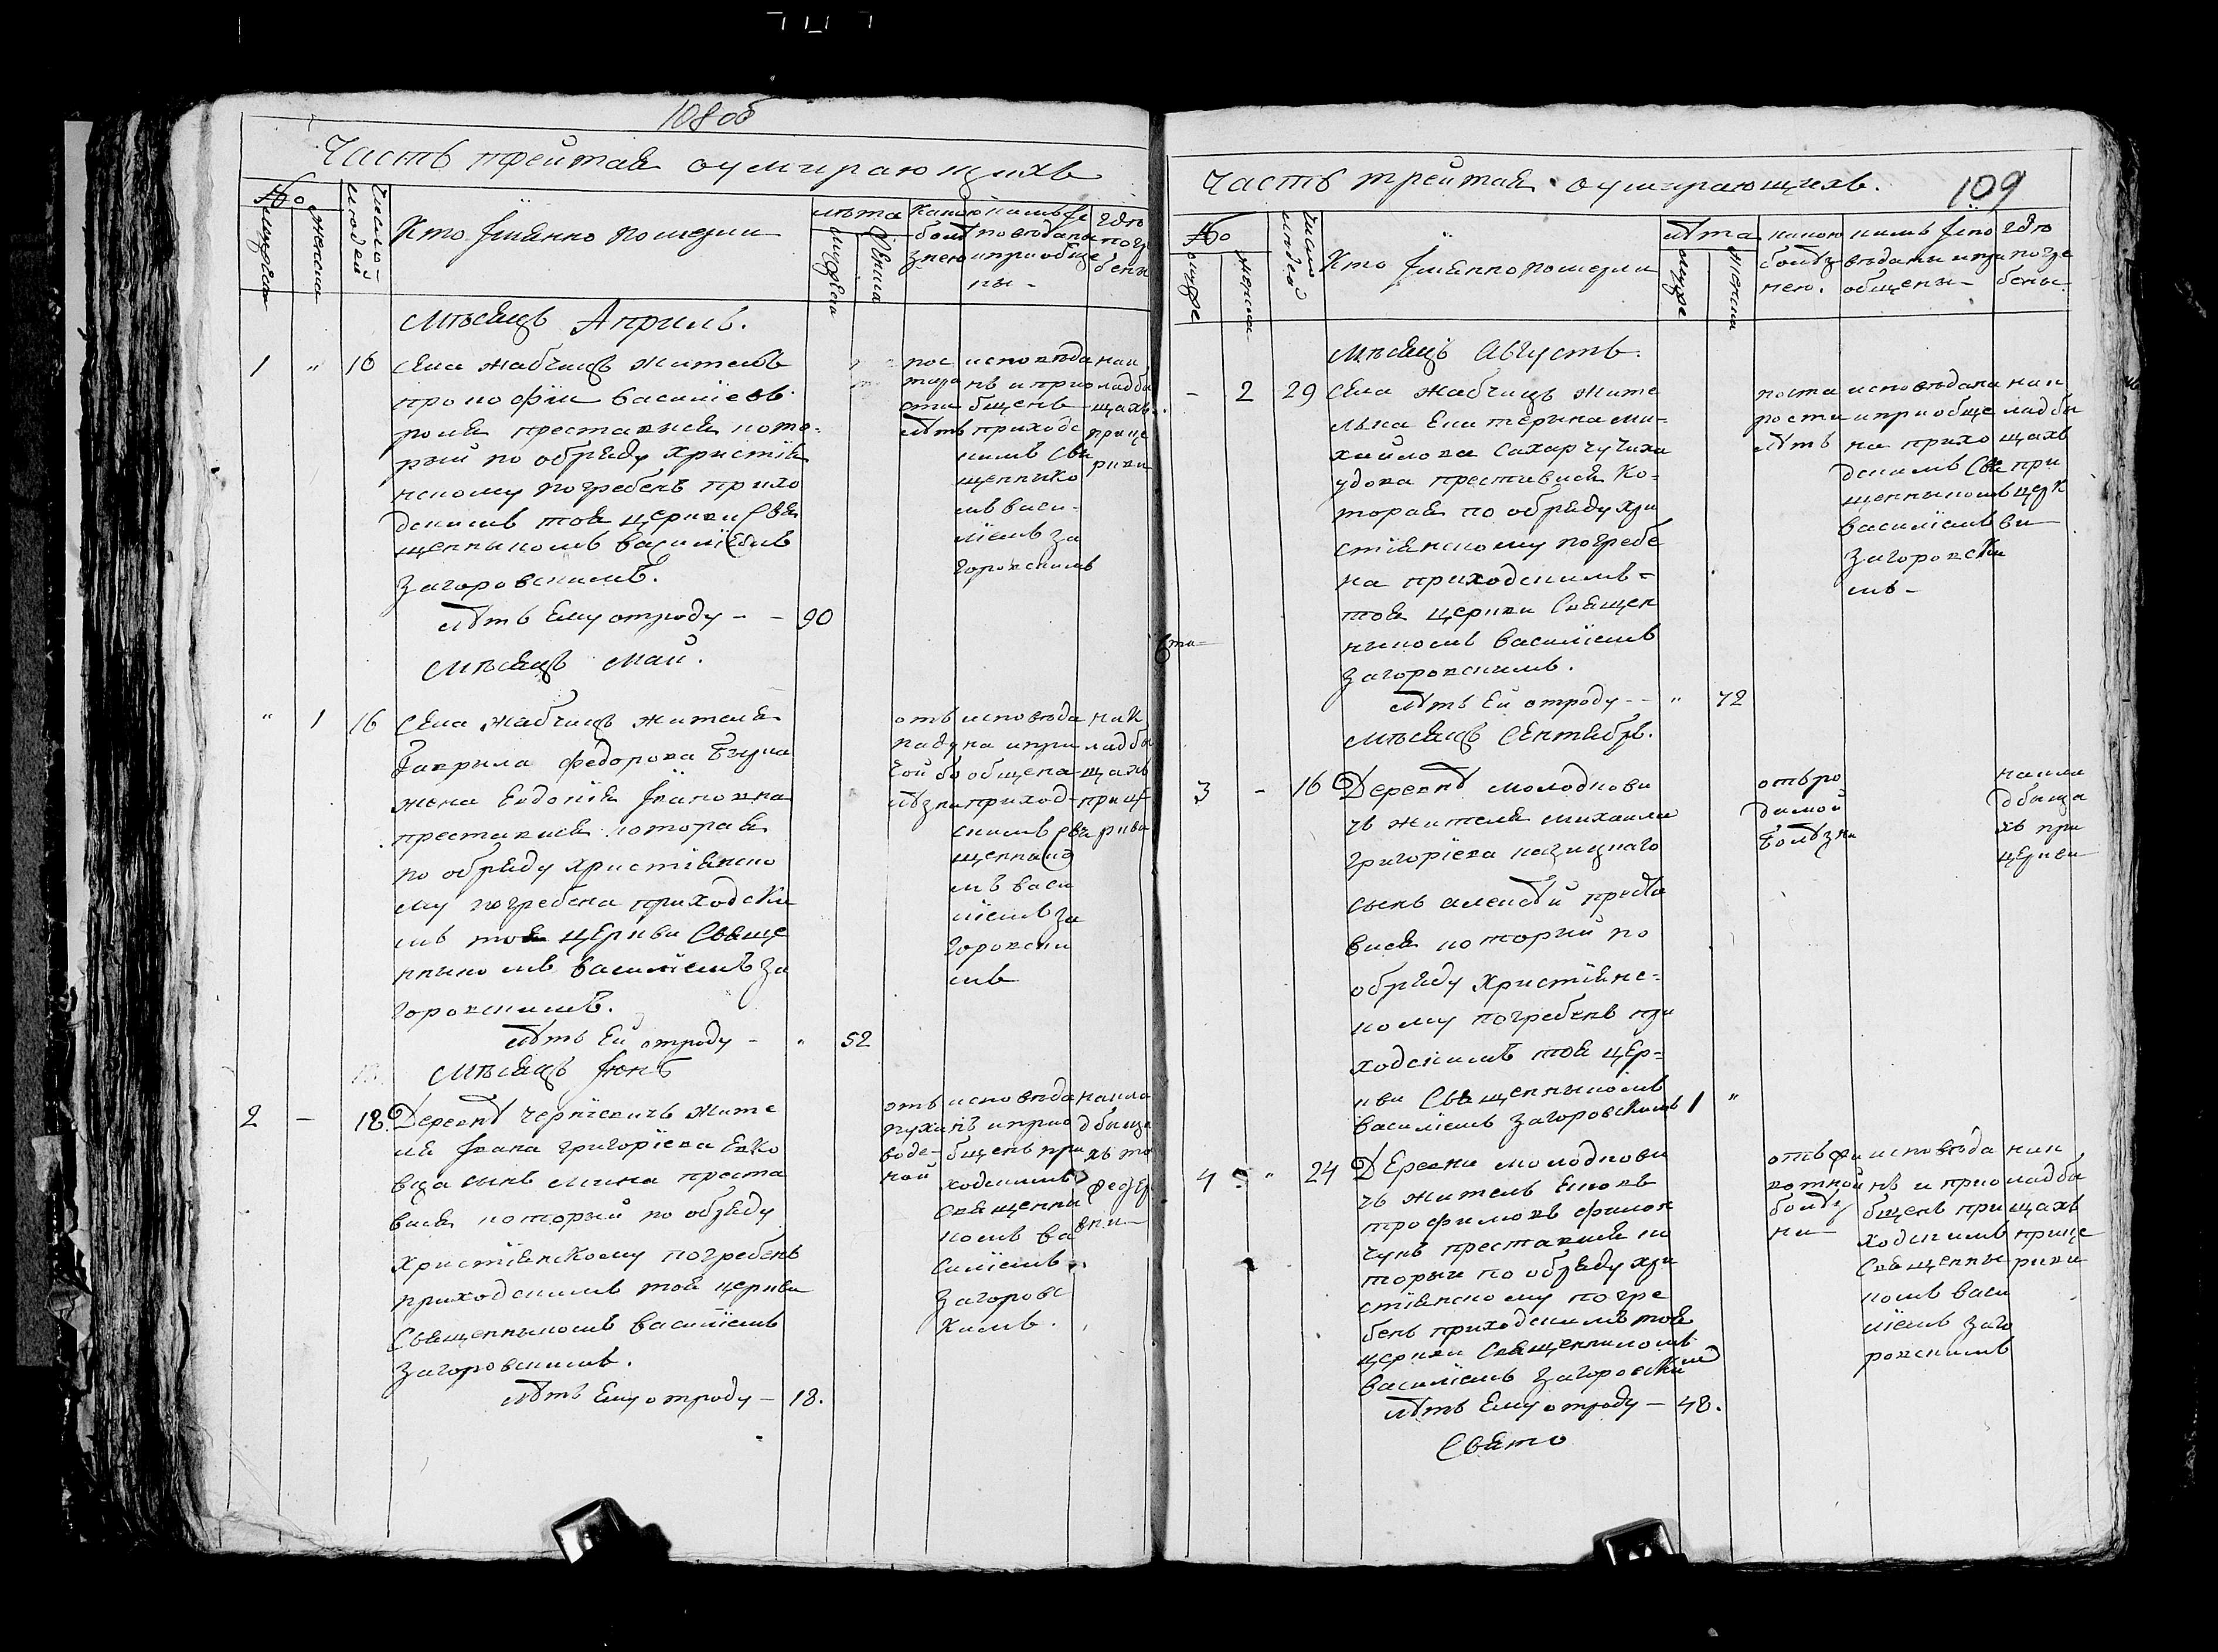 108 об
Часть трейтая оумирающихъ
№
мужеска
женска
число людей
Кто имянно померли
лѣта
мужеска
женска
какою болѣзнею
кемъ исповѣданы и приобщены
гдѣ погребены
Мѣсяцъ Априль.
1 " 16
Села Жабчицъ житель
прокофій василіевъ
преставися кото-
рий по обряду христия
нскому погребенъ прихо
дскимъ тоя церкви свя
щенникомъ василіемъ
Загоровскимъ.
лѣтъ Ему отроду - - 90
отъ старости лѣтъ
исповѣда
нъ и прио
бщенъ
приходс
кимъ свя
щеннико
мъ васи
ліемъ за
горовскимъ
на к
ладби
щахъ
при це
ркви
Мѣсяцъ Маи.
" 1 16
Села Жабчицъ жителя
Гаврила Федорова
жена Евдокія Іванов­на
преставися котора­я
по обряду християнско
му погребена приходски
мъ тоя церкви Свяще
нникомъ василіемъ За
горовскимъ.
лѣтъ Ей отроду - " 52
отъ
паду
чой бо
лѣзни
исповѣда
на и при
общена
приход-
скимъ свя
щеннико
мъ васи
ліемъ За
горовски
мъ
на к
ладби
щахъ
при це
ркви
Мѣсяцъ Іюнь
2 - 18.
Деревнѣ Чернѣевичъ жите
ля Ивана Григоріева
сынъ Мина преста
вися которий по обряду
християнскому погребенъ
приходскимъ тоя церкви
Священникомъ василіемъ
Загоровскимъ.
лѣтъ Ему отроду - 18.
отъ
пухи
водя-
ной
исповѣда
нъ и прио
бщенъ при
ходскимъ
священни
комъ ва
силіемъ
Загоровс
кимъ.
на кла
дбища
хъ
Часть трейтая оумирающихъ.
109
№
муже
женска
число людей
Кто имянно померли
лѣта
муже
женска
какою болѣз
нею.
кемъ испо
вѣданы и при
общены -
гдѣ
погре
бены.
Мѣсяцъ Августъ.
- 2 29
Села Жабчицъ жите
лька Екатерина Ми-
хайлова Сахарчучиха
удова преставися Ко-
торая по обряду хри
стиянскому погребе
на приходскимъ -
тоя церкви Священ
никомъ василіемъ
Загоровскимъ.
лѣтъ Ей отроду - - " 72
по ста
рости
лѣтъ
исповѣдана
и приобще
на прихо
дскимъ Свя
щенникомъ
василіемъ
Загоровски
мъ -
на к
ладби
щахъ
при
церк
ви
Мѣсяцъ Сентябрь.
3 - 16
Деревнѣ Молоднови
чъ жителя Михаила
Григоріева
сынъ Алексѣй преста
вися которий по
обряду християнс-
кому погребенъ при
ходскимъ тоя цер-
кви Священникомъ
василіемъ Загоровскимъ 1 "
отъ ро
димой
болѣзни
на кла
дбища
хъ при
церкви
4 " 24
Деревни Молоднови
чъ житель
Трофимовъ
преставися ко
торый по обряду хри
стиянскому погре
бенъ приходскимъ тоя
церкви Священникомъ
василіемъ Загоровским
лѣтъ Ему отроду - 48.
Свято
болѣз
ни
исповѣда
нъ и прио
бщенъ при
ходскимъ
священни
комъ васи
ліемъ Заго
ровскимъ
на к
ладби
щахъ
при це
ркви